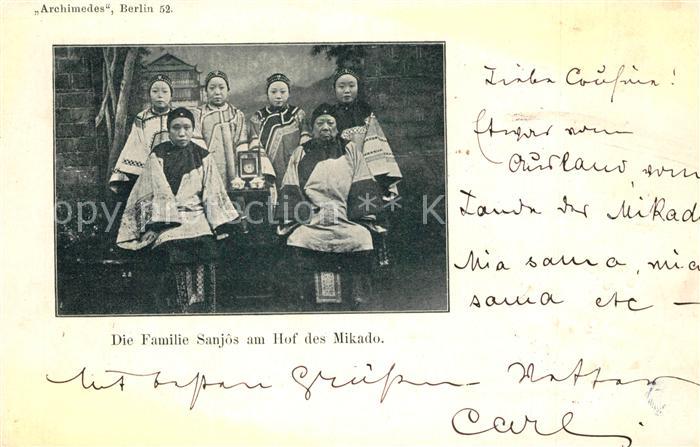 „Archimedes“, Berlin 52.
Liebe Cousine!
Etwas vom
Ausland, vom
Lande der Mikado
Mia sama, mia
sama etc —
copy protection ** K
Die Familie Sanjôs am Hof des Mikado.
Mit besten Grüßen Vetter
Carl.